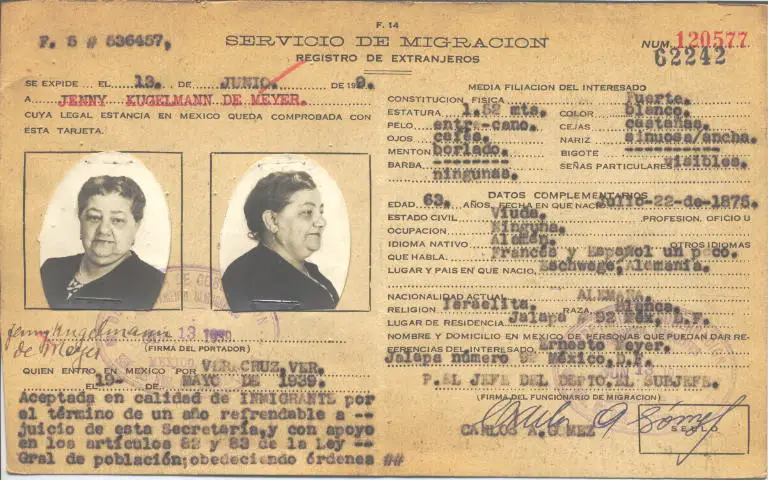 F. 14
F. 5 # 536457,
SERVICIO DE MIGRACION
REGISTRO DE EXTRANJEROS
NUM. 120577
62242
SE EXPIDE EL 13. DE JUNIO. DE 19 9.
A JENNY KUGELMANN DE MEYER.
CUYA LEGAL ESTANCIA EN MEXICO QUEDA COMPROBADA CON
ESTA TARJETA.
Jenny Kugelmann
de Meyer
13 1939
(FIRMA DEL PORTADOR)
QUIEN ENTRO EN MEXICO POR VERACRUZ, VER.
EL 19- MAYO DE 1939.
Aceptada en calidad de INMIGRANTE por
el término de un año refrendable a --
juicio de esta Secretaría, y con apoyo
en los artículos 82 y 83 de la Ley --
Gral de población; obedeciendo órdenes ##
MEDIA FILIACION DEL INTERESADO
CONSTITUCION FISICA Fuerte.
ESTATURA 1.52 mts. COLOR blanco.
PELO entre-cano. CEJAS castañas.
OJOS cafés. NARIZ sinuosa/ancha.
MENTON borlado. BIGOTE ----------
BARBA -------- SEÑAS PARTICULARES visibles.
ningunas.
DATOS COMPLEMENTARIOS
EDAD 63. AÑOS, FECHA EN QUE NACIO Julio-22-de-1875.
ESTADO CIVIL Viuda. PROFESION, OFICIO U
OCUPACION Ninguna.
IDIOMA NATIVO Alemán. OTROS IDIOMAS
QUE HABLA. Francés y Español un poco.
LUGAR Y PAIS EN QUE NACIO, Eschwege, Alemania.
NACIONALIDAD ACTUAL ALEMANA.
RELIGION Israelita. RAZA Blanca.
LUGAR DE RESIDENCIA Jalapa # 92 Méx, D.F.
NOMBRE Y DOMICILIO EN MEXICO DE PERSONAS QUE PUEDAN DAR RE-
FERENCIAS DEL INTERESADO, Ernesto Meyer.
Jalapa número 92 México, D.F.
P. EL JEFE DEL DEPTO. EL SUBJEFE.
(FIRMA DEL FUNCIONARIO DE MIGRACION)
CARLOS A. GOMEZ
SELLO